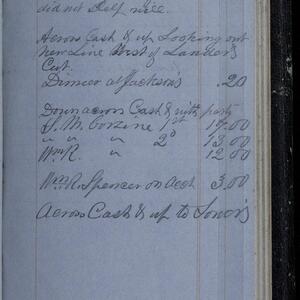 did not Help nice.
Across Cash & up Looking out
new Line West of Lander's
Cut.
Dinner at Jackson's .20
Down across Cash & with party
J. M. Corzine 1st 19.00
" " " 2d 13.00
Wm R. " 12.00
Wm R. Spencer on Acct 3.00
Across Cash & up to